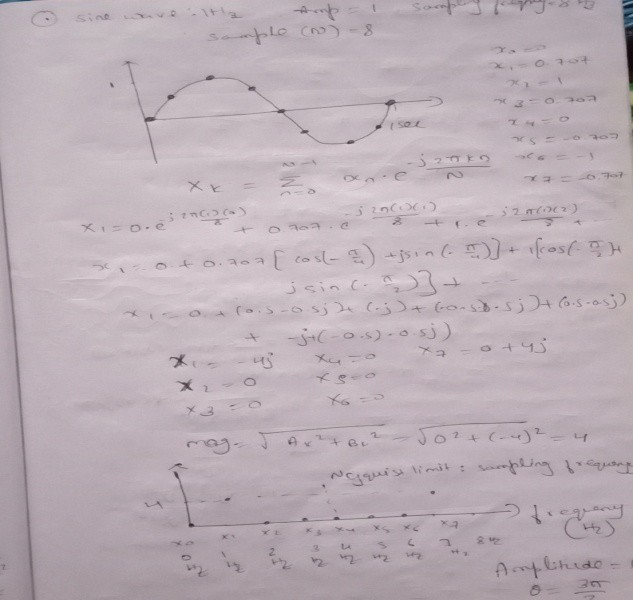 sine wave :- 1Hz Amp = 1 sampling freqny = 8 Hz
sample (N) = 8
x₀ = 0
x₁ = 0.707
x₂ = 1
x₃ = 0.707
x₄ = 0
x₅ = -0.707
x₆ = -1
x₇ = -0.707
1 sec
X_k = Σ_{n=0}^{N-1} x_n · e^{-j2πkn/N}
X₁ = 0·e^{j2π(1)(0)/8} + 0.707·e^{-j2π(1)(1)/8} + 1·e^{-j2π(1)(2)/8} + ·
X₁ = 0 + 0.707 [cos(-π/4) + jsin(-π/4)] + 1[cos(-π/2) +
jsin(-π/2)] + ---
X₁ = 0 + (0.5 - 0.5j) + (-j) + (-0.5 - 0.5j) + (0.5 - 0.5j)
+ -j + (-0.5) - 0.5j)
X₁ = -4j X₄ = 0 X₇ = 0 + 4j
X₂ = 0 X₅ = 0
X₃ = 0 X₆ = 0
mag = √Ak² + Bk² = √0² + (-4)² = 4
Nyquist limit : sampling frequency
4
frequency
(Hz)
x₀ x₁ x₂ x₃ x₄ x₅ x₆ x₇
0 Hz 1 Hz 2 Hz 3 Hz 4 Hz 5 Hz 6 Hz 7 Hz 8 Hz
Amplitude =
θ = 3π/2